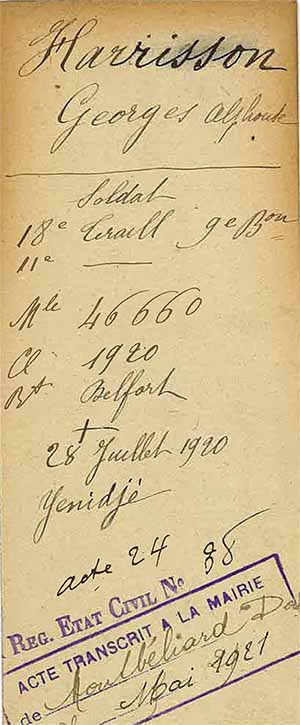 Harrisson
Georges Alphonse
Soldat
18e Tiraill 9e Bon
11e —
Mle 46660
Cl 1920
Bt Belfort
† 28 Juillet 1920
Yenidjé
acte 24 38
REG. ETAT CIVIL No
ACTE TRANSCRIT A LA MAIRIE
de Montbéliard Do
Mai 1921